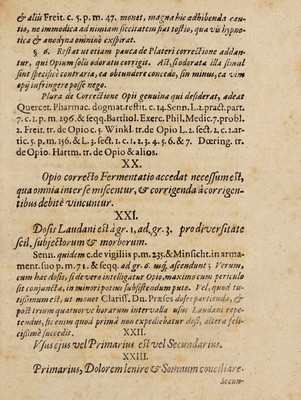 & alii Freit. c. 5. p. m. 47. monet, magna hic adhibenda cau-
tio, ne immodica ad nimiam siccitatem fiat tostio, qua vis hypno-
tica & anodyna omninò exspirat.
§ 6. Restat ut etiam pauca de Plateri correctione addan-
tur, qui Opium solis odoratu corrigit. Ast, si odorata illa simul
sint specificè contraria, ea obtundere concedo, sin minus, ea vim
opij infringere posse nego.
Plura de Correctione Opii genuina qui desiderat, adeat
Quercet. Pharmac. dogmat. restit. c. 14. Senn. L. 2. pract. part.
7. c. 1. p. m. 296. & seqq. Barthol. Exerc. Phil. Medic. 7. probl.
2. Freit. tr. de Opio c. 5. Winkl. tr. de Opio L. 2. sect. 2. c. 2. ar-
tic. 5. p. m. 156. & L. 3. sect. 1. c. 1. 2. 3. 4. 5. 6. & 7. Dœring. tr.
de Opio. Hartm. tr. de Opio & alios.
XX.
Opio correcto Fermentatio accedat necessum est,
qua omnia interse miscentur, & corrigenda à corrigen-
tibus debitè vincuntur.
XXI.
Dosis Laudani est à gr. 1. ad, gr. 3. pro diversitate
scil. subjectorum & morborum.
Senn. quidem c. de vigiliis p. m. 235. & Minsicht. in arma-
ment. suo p. m. 71. & seqq. ad gr. 6. usq; ascendunt; Verum,
cum hac dosis, si de vero intelligatur Opio, maximo cum periculo
sit conjuncta, in minori potius subsistendum puto. Vel, quod tu-
tissimum est, ut monet Clariss. Dn. Præses doses partiendo, &
post trium quatuorve horarum intervalla usus Laudani repe-
tendus, sic enim quod primâ non expediebatur dosi, altera feli-
cissimè succedit.
XXII.
Usus ejus vel Primarius est vel Secundarius.
XXIII.
Primarius, Dolorem lenire & Somnum conciliare.
Secun-